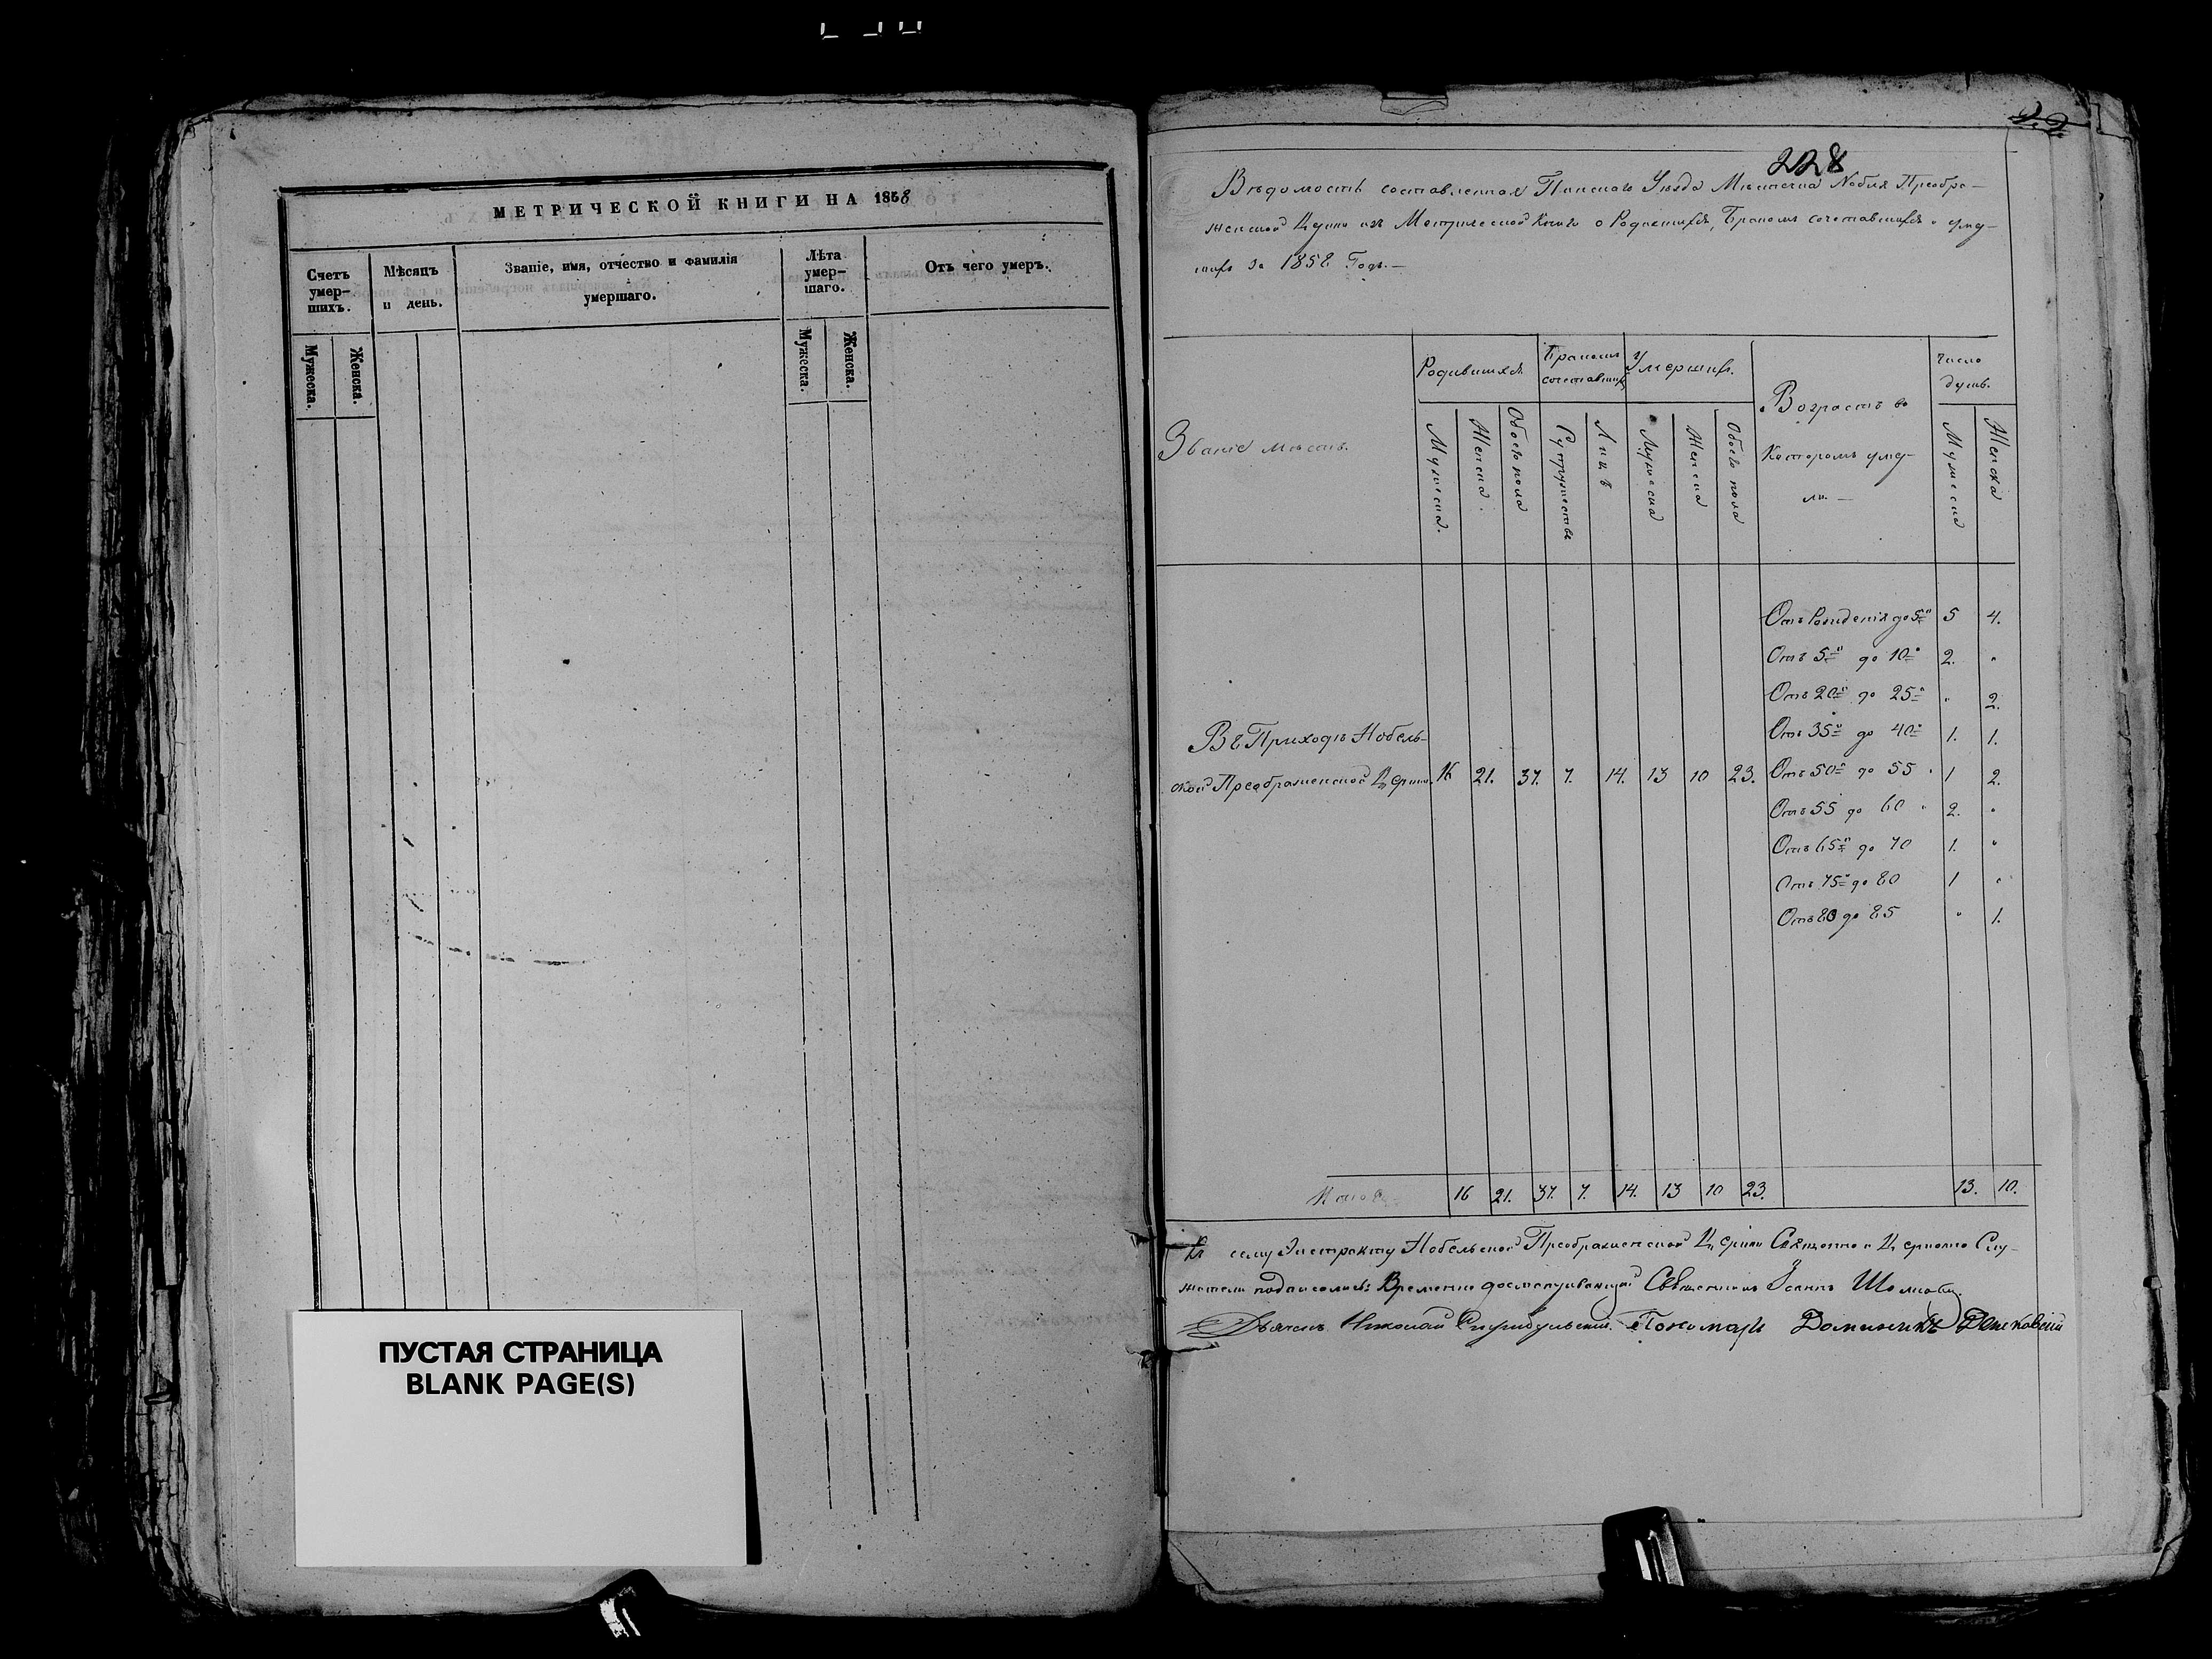 МЕТРИЧЕСКОЙ КНИГИ НА 1858
Счетъ умер-шихъ.
Мужеска.
Женска.
Мѣсяцъ и день.
Званіе, имя, отчество и фамилія
умершаго.
Лѣта умер-шаго.
Мужеска.
Женска.
Отъ чего умеръ.
ПУСТАЯ СТРАНИЦА
BLANK PAGE(S)
22
228
Вѣдомость составленная Пинскаго Уѣзда Мѣстечка Нобля Преобра-
женской Церкви изъ Метрической Книги о Родившихся, Бракомъ сочетавшихся и уме-
шихъ За 1858 Годъ.—
Званіе мѣстъ.
Родившихся
Мужеска.
Женска.
Обоего пола
Бракомъ
сочетавшихся
Супружествъ
Лицъ
Умершихъ.
Мужеска
Женска
Обоего пола
Возрастъ въ
Которомъ уме-
ли —
Число
душъ.
Мужеска
Женска
Отъ Рожденія до 5 5 4.
Отъ 5 до 10 2. "
Отъ 20 до 25 " 2.
Отъ 35 до 40 1. 1.
Отъ 50 до 55 1 2.
Отъ 55 до 60 2. "
Отъ 65 до 70 1. "
Отъ 75 до 80 1 "
Отъ 80 до 85 " 1.
Въ Приходѣ Нобель-
ской Преображенской Церкви 16 21. 37. 7. 14. 13 10 23.
Итого 16 21. 37. 7. 14. 13 10 23. 13. 10.
Къ сему Экстракту Нобельской Преображенской Церкви Священно и Церковно Слу-
жители подписались: Временно Священникъ Іоаннъ
Дьячекъ Николай Пономарь Доминикъ